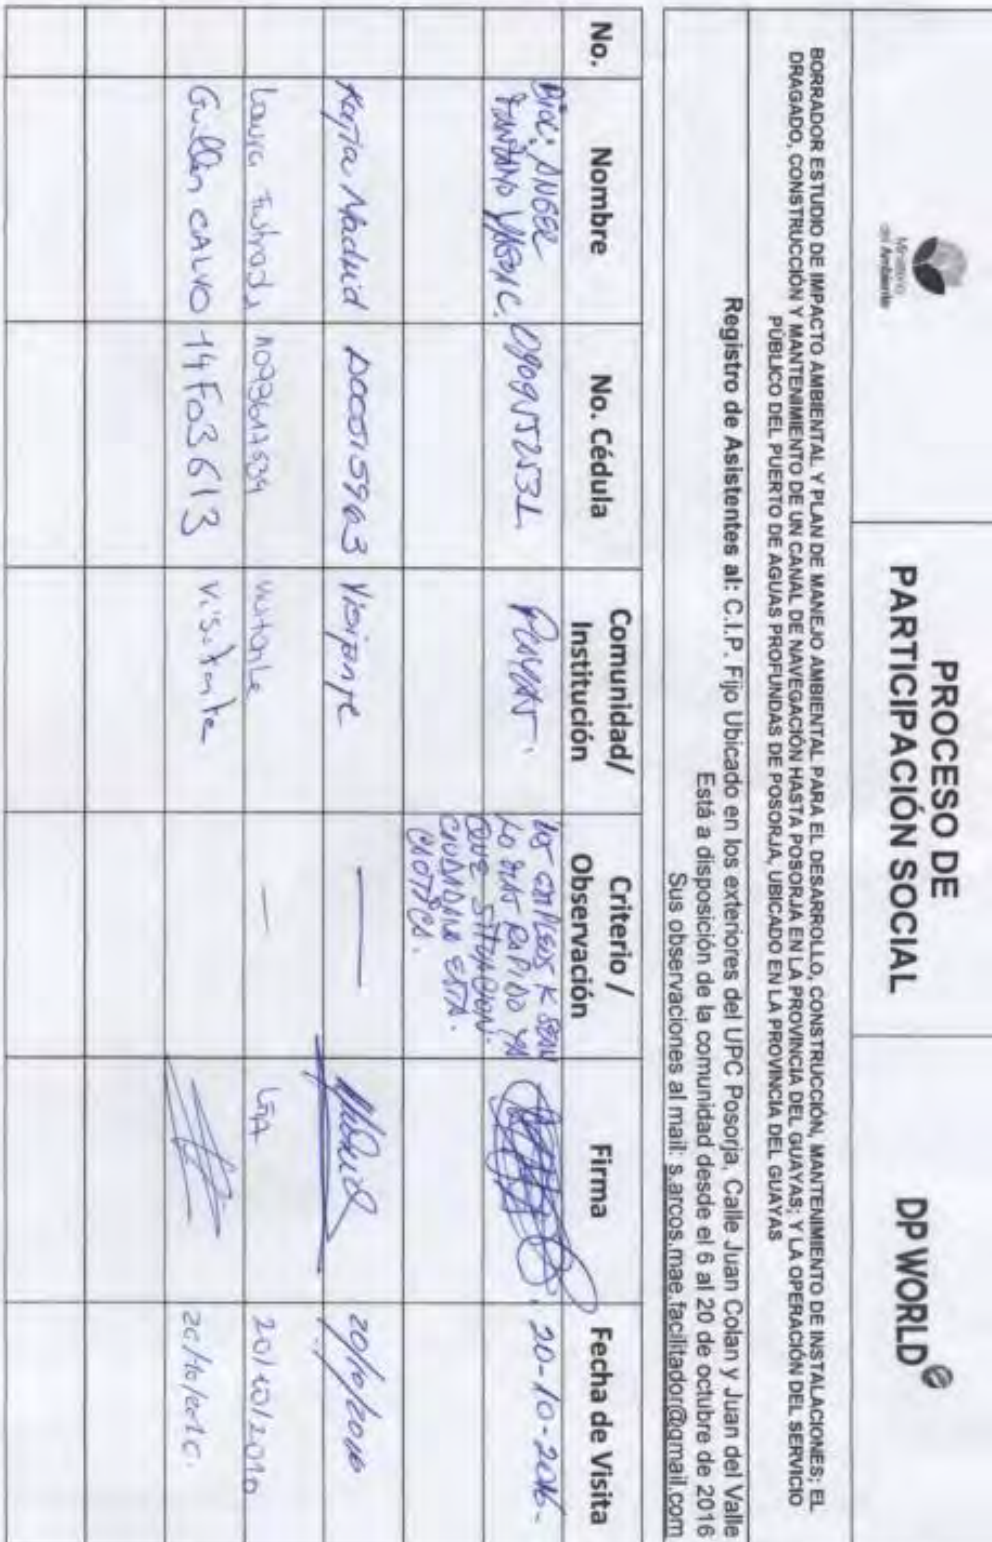 Ministerio
del Ambiente
PROCESO DE
PARTICIPACIÓN SOCIAL
DP WORLD
BORRADOR ESTUDIO DE IMPACTO AMBIENTAL Y PLAN DE MANEJO AMBIENTAL PARA EL DESARROLLO, CONSTRUCCIÓN, MANTENIMIENTO DE INSTALACIONES; EL
DRAGADO, CONSTRUCCIÓN Y MANTENIMIENTO DE UN CANAL DE NAVEGACIÓN HASTA POSORJA EN LA PROVINCIA DEL GUAYAS; Y LA OPERACIÓN DEL SERVICIO
PÚBLICO DEL PUERTO DE AGUAS PROFUNDAS DE POSORJA, UBICADO EN LA PROVINCIA DEL GUAYAS
Registro de Asistentes al: C.I.P. Fijo Ubicado en los exteriores del UPC Posorja, Calle Juan Colan y Juan del Valle
Está a disposición de la comunidad desde el 6 al 20 de octubre de 2016
Sus observaciones al mail: s.arcos.mae.facilitador@gmail.com
No.
Nombre
No. Cédula
Comunidad/
Institución
Criterio /
Observación
Firma
Fecha de Visita
ANGEL
0909525331
PLAYAS.
LOS EMPLEOS K SEAN
LO MAS RAPIDO YA
QUE SITUACION.
CIUDADANA ESTA.
CAOTICA.
20-10-2016-
Katia Madrid
Visitante
—
20/10/2016
Laura
visitante
—
20/10/2016
Guillén CALVO
14F03613
visitante